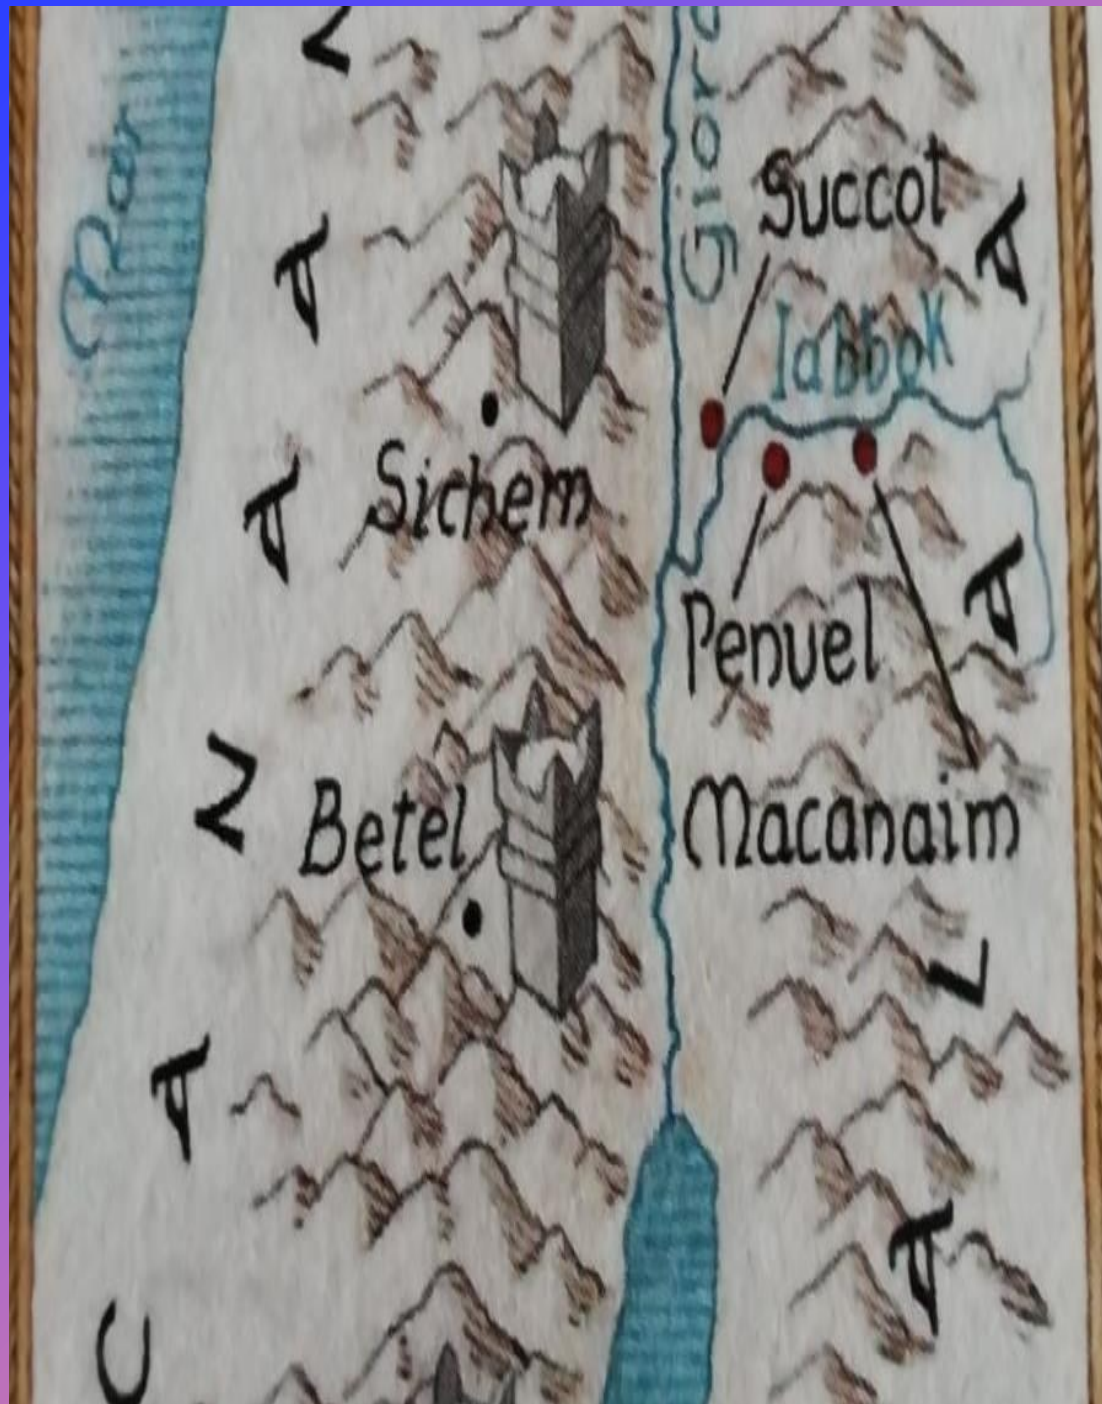 Mar
C A N A A N
Gior
Succot
Iabbok
Sichem
Penuel
Betel
Macanaim
A L A A